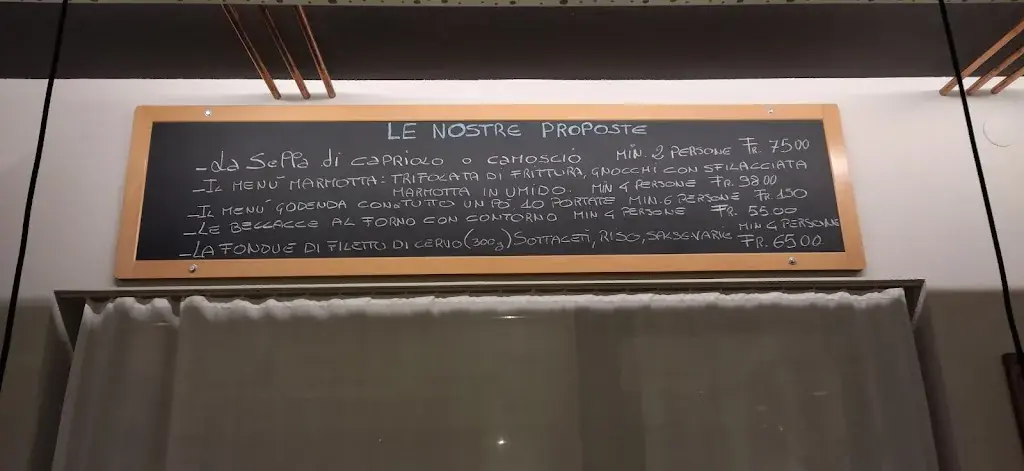 LE NOSTRE PROPOSTE
- La Sella di CAPRIOLO o CAMOSCIO MIN. 2 PERSONE Fr. 75.00
- IL MENÙ MARMOTTA: TRIFOLATA DI FRITTURA, GNOCCHI CON SFILACCIATA
MARMOTTA IN UMIDO. MIN 4 PERSONE Fr. 98.00
- IL MENÙ GODENDA CON TUTTO UN PO' 10 PORTATE MIN. 6 PERSONE Fr. 150
- LE BECCACCE AL FORNO CON CONTORNO MIN 4 PERSONE Fr. 55.00
- LA FONDUE DI FILETTO DI CERVO (300g) SOTTACETI, RISO, SALSE VARIE MIN 4 PERSONE Fr. 65.00